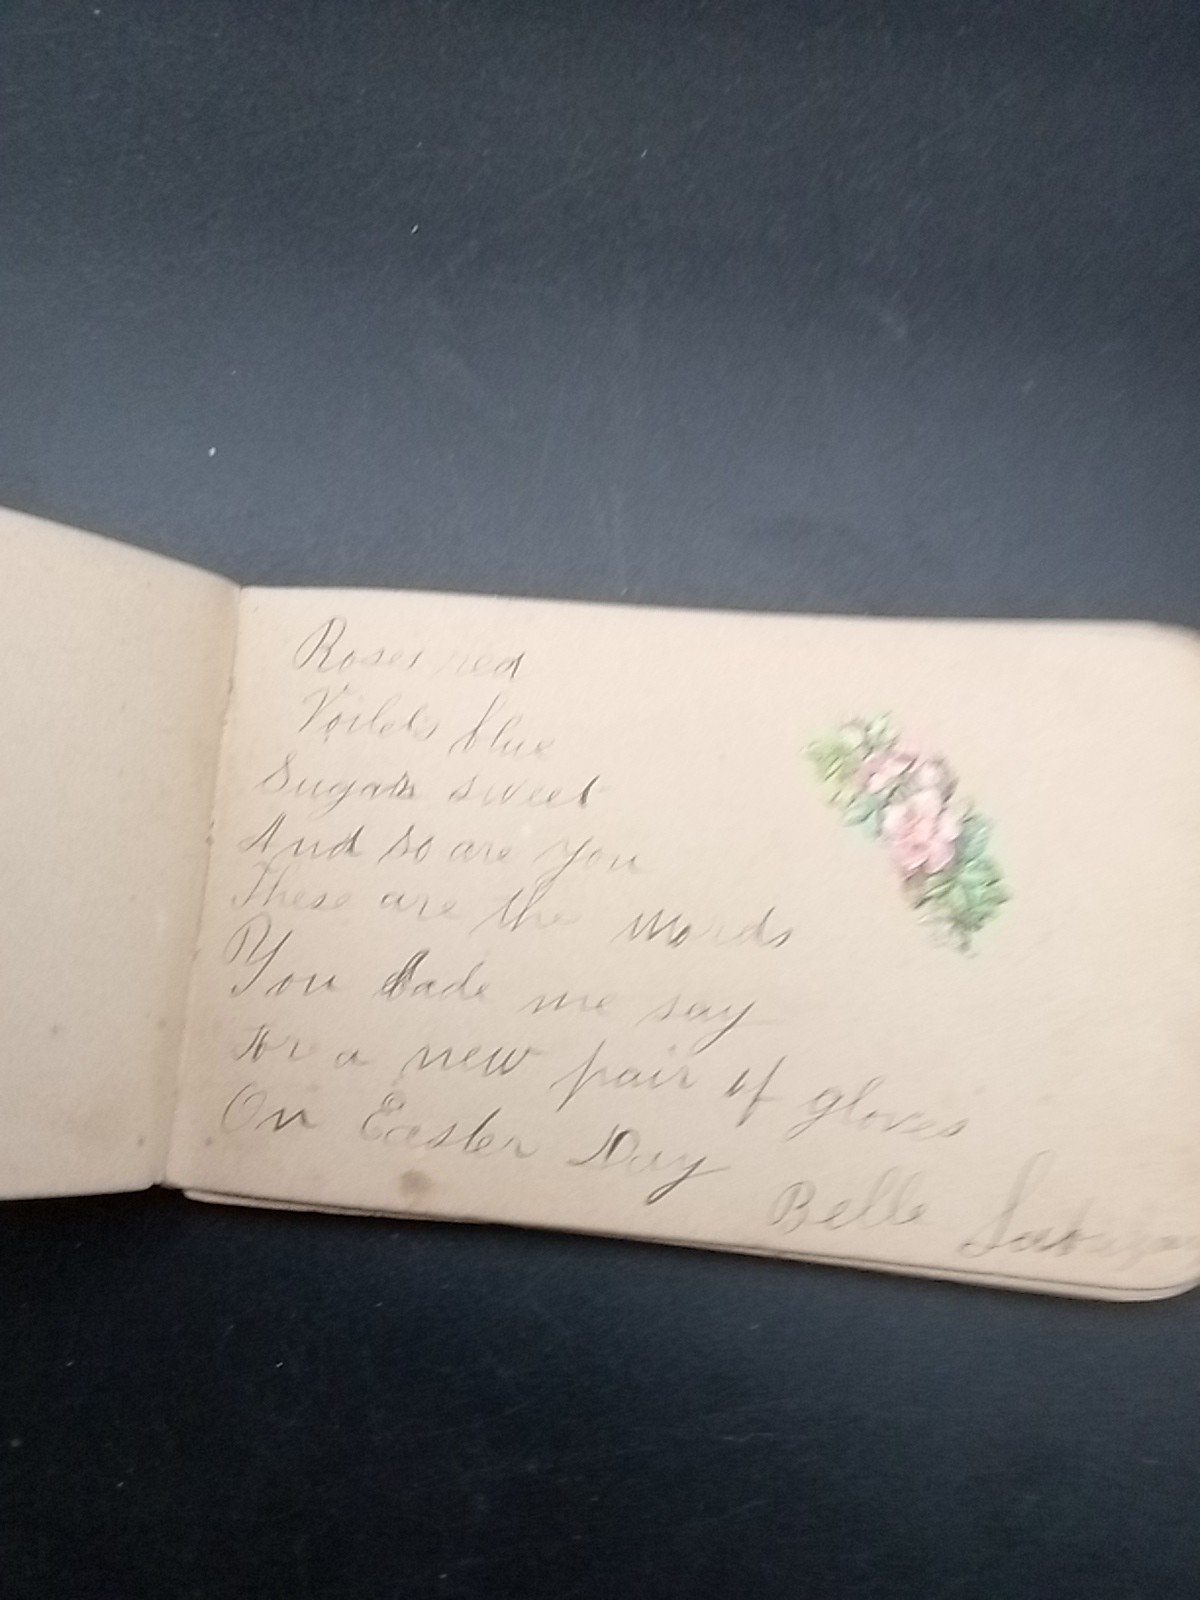 Roses red
Voilets blue
Sugar sweet
And so are you
These are the words
You bade me say
For a new pair of gloves
On Easter Day
Belle